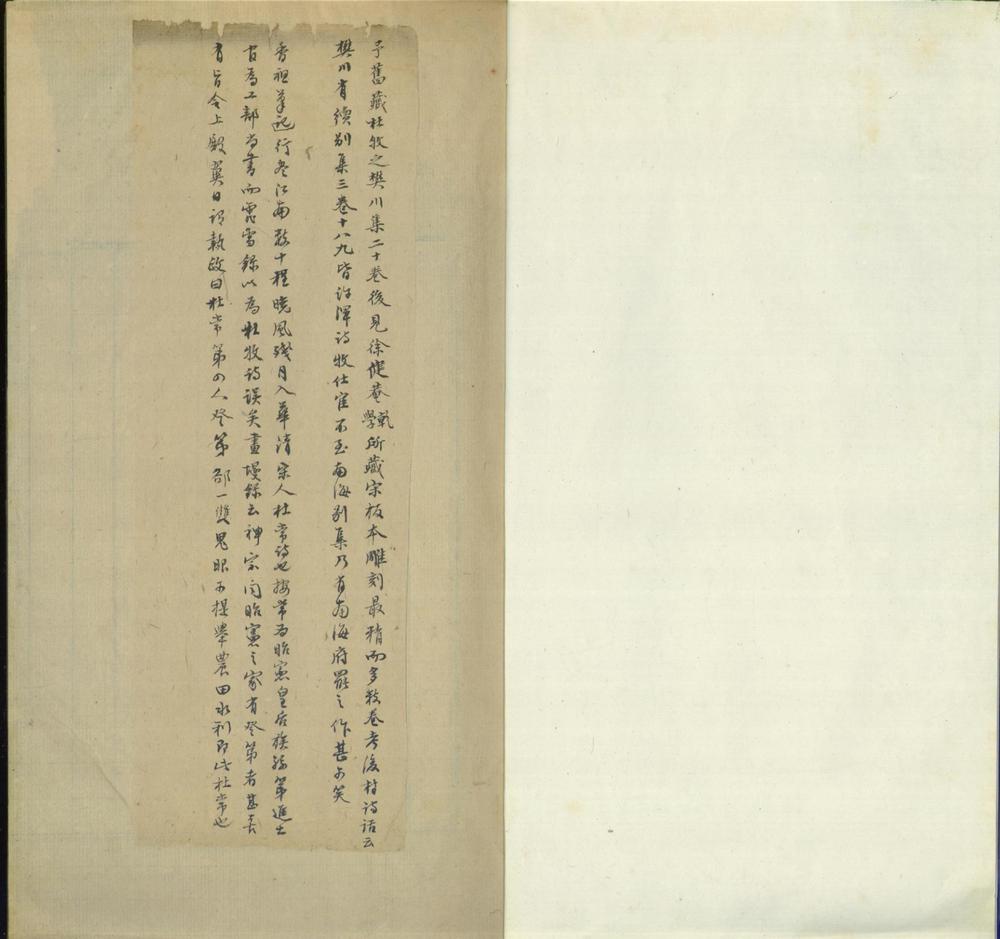 予舊藏杜牧之樊川集二十卷後見徐健菴乾學所藏宋板本雕刻最精而多數卷考後村詩話云
樊川有續別集三卷十八九皆許渾詩牧仕宦不至南海別集乃有南海府罷之作甚可笑
香祖筆記行盡江南數十程曉風殘月入華清宋人杜常詩也按常爲昭憲皇后族孫第進士
官爲工部尚書而霏雪錄以爲杜牧詩誤矣畫墁錄云神宗聞昭憲之家有登第者甚喜
有旨令上殿翼日謂執政曰杜常第四人登第卻一雙鬼眼可提舉農田水利即此杜常也